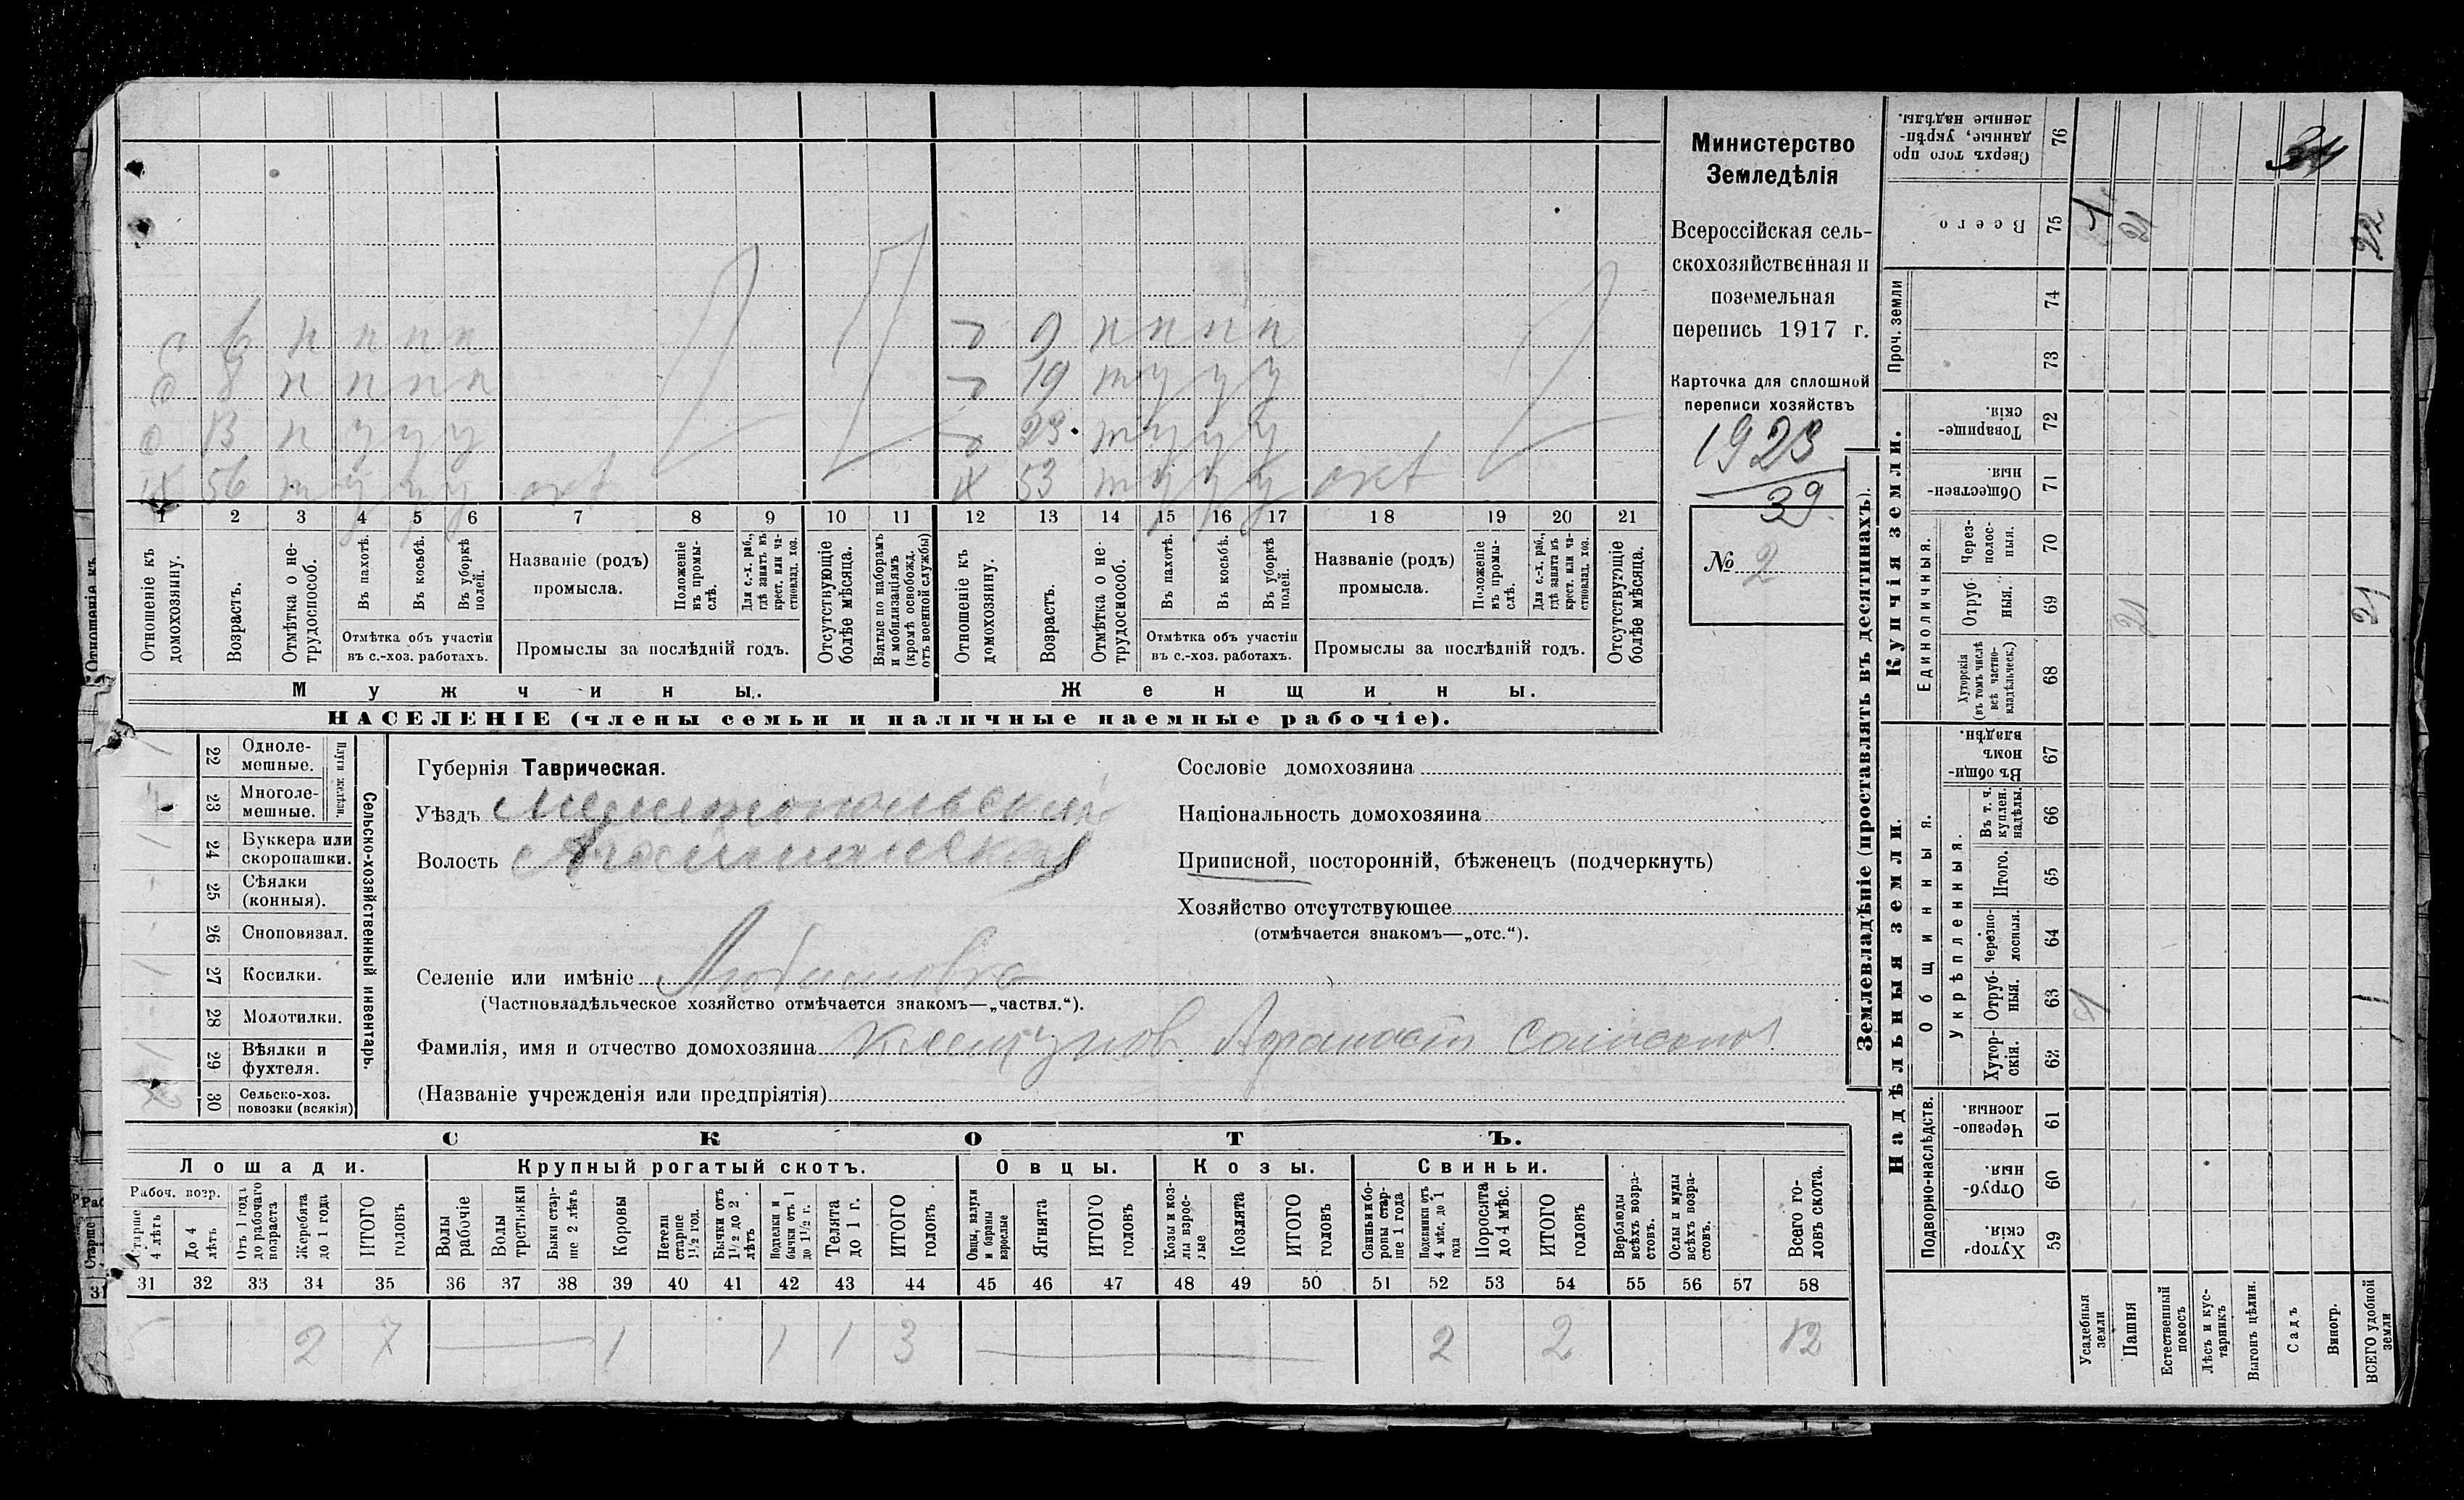 Министерство
Земледѣлія
Всероссійская сель-
скохозяйственная и
поземельная
перепись 1917 г.
Карточка для сплошной
переписи хозяйствъ
1923
39
№ 2
6 п п п п
8 п п п п
13 п у у у
56 т у у у окт
9 п п п п
19 т у у у
23 т у у у
53 т у у у окт
1 2 3 4 5 6 7 8 9 10 11 12 13 14 15 16 17 18 19 20 21
Отношеніе къ домохозяину.
Возрастъ.
Отмѣтка о не-трудоспособ.
Въ пахотѣ.
Въ косьбѣ.
Въ уборкѣ полей.
Отмѣтка объ участіи
въ с.-хоз. работахъ.
Названіе (родъ)
промысла.
Положеніе въ промы-слѣ.
Для с.-х. раб., гдѣ занятъ въ крест. или ча-стновлад. хоз.
Промыслы за послѣдній годъ.
Отсутствующіе болѣе мѣсяца.
Взятые по наборамъ и мобилизаціямъ (кромѣ освобожд. отъ военной службы)
Отношеніе къ домохозяину.
Возрастъ.
Отмѣтка о не-трудоспособ.
Въ пахотѣ.
Въ косьбѣ.
Въ уборкѣ полей.
Отмѣтка объ участіи
въ с.-хоз. работахъ.
Названіе (родъ)
промысла.
Положеніе въ промы-слѣ.
Для с.-х. раб., гдѣ занята въ крест. или ча-стновлад. хоз.
Промыслы за послѣдній годъ.
Отсутствующіе болѣе мѣсяца.
Мужчины.
Женщины.
НАСЕЛЕНІЕ (члены семьи и наличные наемные рабочіе).
Сельско-хозяйственный инвентарь.
Плуги желѣзн.
22 Одноле-мешные.
23 Многоле-мешные.
24 Буккера или скоропашки.
25 Сѣялки (конныя).
26 Сноповязал.
27 Косилки.
28 Молотилки.
29 Вѣялки и фухтеля.
30 Сельско-хоз. повозки (всякія)
Губернія Таврическая.
Уѣздъ Мелитопольскій
Волость
Селеніе или имѣніе
(Частновладѣльческое хозяйство отмѣчается знакомъ—„частвл.“).
Фамилія, имя и отчество домохозяина
(Названіе учрежденія или предпріятія)
Сословіе домохозяина
Національность домохозяина
Приписной, посторонній, бѣженецъ (подчеркнуть)
Хозяйство отсутствующее
(отмѣчается знакомъ—„отс.“).
СКОТЪ.
Лошади.
Крупный рогатый скотъ.
Овцы.
Козы.
Свиньи.
Рабоч. возр.
Старше 4 лѣтъ
До 4 лѣтъ
Отъ 1 года до рабочаго возраста
Жеребята до 1 года
ИТОГО головъ
Волы рабочіе
Волы третьяки
Быки стар-ше 2 лѣтъ
Коровы
Нетели старше 1½ год.
Бычки отъ 1½ до 2 лѣтъ
Подтелки и бычки отъ 1 до 1½ г.
Телята до 1 г.
ИТОГО головъ
Овцы, валухи и бараны взрослые
Ягнята
ИТОГО головъ
Козы и коз-лы взрос-лые
Козлята
ИТОГО головъ
Свиньи бо-ровы стар-ше 1 года
Подсвинки отъ 4 мѣс. до 1 года
Поросята до 4 мѣс.
ИТОГО головъ
Верблюды всѣхъ возра-стовъ.
Ослы и мулы всѣхъ возра-стовъ.
Всего го-ловъ скота.
31 32 33 34 35 36 37 38 39 40 41 42 43 44 45 46 47 48 49 50 51 52 53 54 55 56 57 58
5 2 7 1 1 1 3 2 2 12
Землевладѣніе (проставлять въ десятинахъ).
Купчія земли.
Надѣльныя земли.
Сверхъ того про данные, укрѣп-ленные надѣлы. 76
Всего 75
1 21 22
Проч. земли 74 73
Товарище-скія. 72
Обществен-ныя. 71
Единоличныя.
Через-полос-ныя. 70
Отруб-ныя. 69
21 21
Хуторскія (въ томъ числѣ всѣ частно-владѣльческ.) 68
Общинныя.
Въ общи-номъ владѣн. 67
Укрѣпленныя.
Въ т. ч. куплен. надѣлы. 66
Итого. 65
Черезпо-лосныя. 64
Отруб-ныя. 63
1
Хутор-скія. 62
Подворно-наслѣдств.
Черезпо-лосныя. 61
Отруб-ныя. 60
Хутор-скія. 59
Усадебныя земли
Пашня
Естественный покосъ
Лѣсъ и кус-тарникъ
Выгонъ цѣлин.
Садъ
Виногр.
ВСЕГО удобной земли